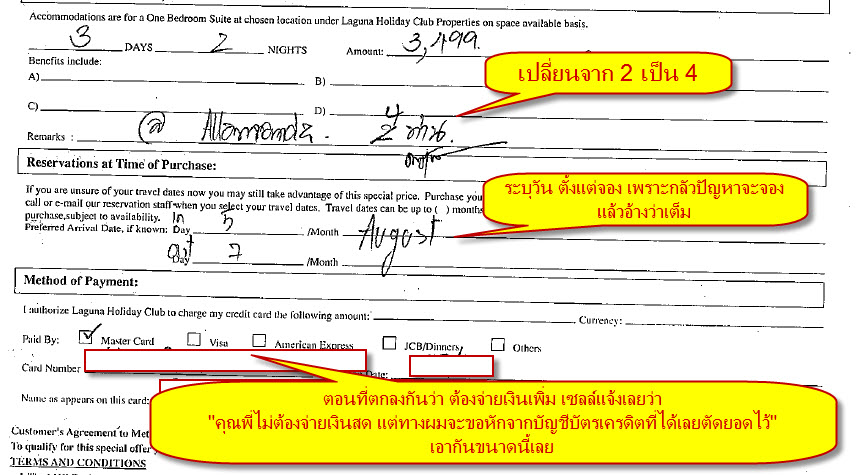 Accommodations are for a One Bedroom Suite at chosen location under Laguna Holiday Club Properties on space available basis.
3 DAYS 2 NIGHTS Amount: 3,499.
Benefits include:
A) B)
เปลี่ยนจาก 2 เป็น 4
C) D)
Remarks : @ Allamanda. 4 2 ท่าน.
Reservations at Time of Purchase:
If you are unsure of your travel dates now you may still take advantage of this special price. Purchase you
call or e-mail our reservation staff when you select your travel dates. Travel dates can be up to ( ) months
purchase,subject to availability.
ระบุวัน ตั้งแต่จอง เพราะกลัวปัญหาจะจอง
แล้วอ้างว่าเต็ม
Preferred Arrival Date, if known: In Day 5 /Month August
out Day 7 /Month
Method of Payment:
I authorize Laguna Holiday Club to charge my credit card the following amount: Currency:
Paid By: Master Card Visa American Express JCB/Dinners Others
Card Number Date:
Name as appears on this card:
ตอนที่ตกลงกันว่า ต้องจ่ายเงินเพิ่ม เซลล์แจ้งเลยว่า
"คุณพี่ไม่ต้องจ่ายเงินสด แต่ทางผมจะขอหักจากบัญชีบัตรเครดิตที่ได้เลยตัดยอดไว้"
เอากันขนาดนี้เลย
Customer's Agreement to Met
To qualify for this special offer
TERMS AND CONDITIONS